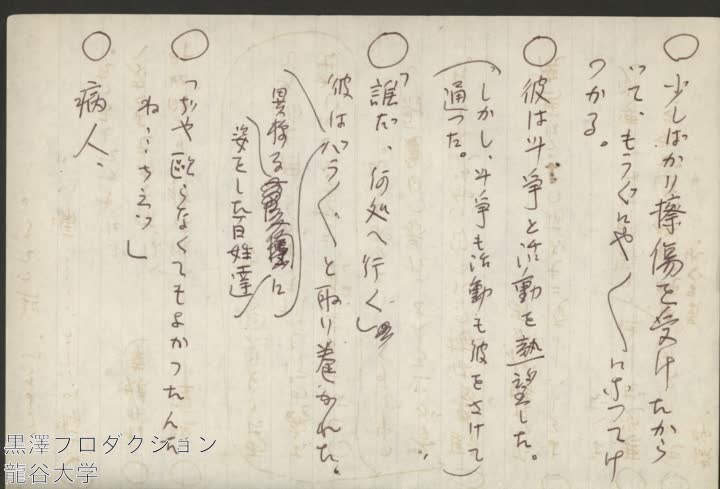 ○ 少しばかり擦傷を受けたから
って、もうぐにや〳〵にぶつてけ
つかる。
○ 彼は斗争と活動を熱望した。
(しかし、斗争も活動も彼をさけて
通つた。)
○ 「誰だ、何処へ行く」
彼はバラ〳〵と取り巻かれた。
異様な
姿をした百姓達に
○ 「ぢや殴らなくてもよかつたんだ
ね…ちえッ」
○ 病人、
黒澤プロダクション
龍谷大学